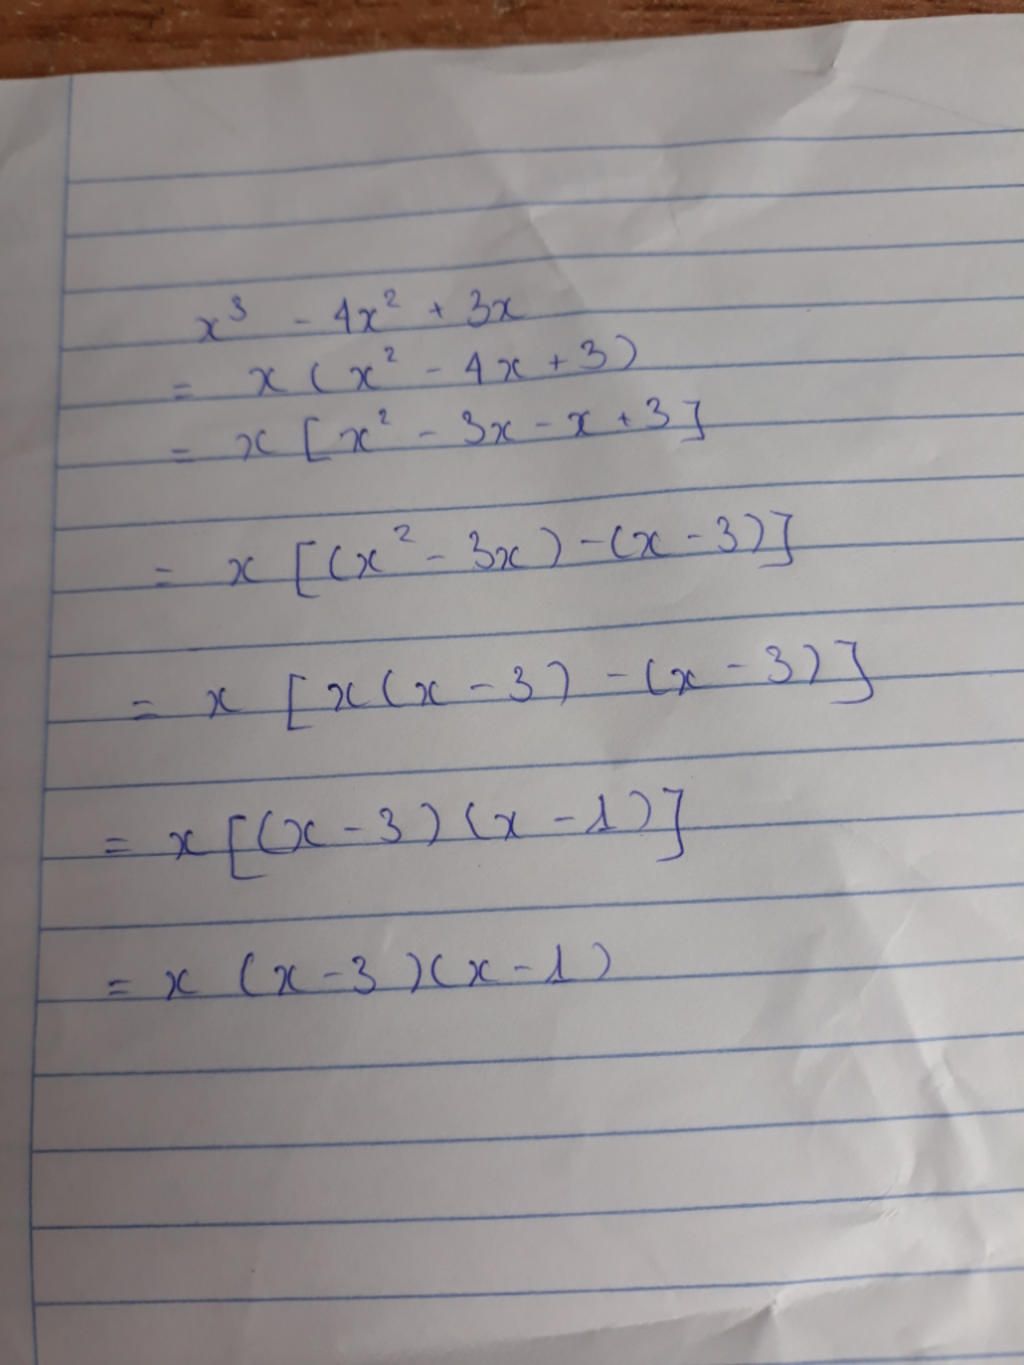 x³ - 4x² + 3x
= x (x² - 4x + 3)
= x [x² - 3x - x + 3]
= x [(x² - 3x) - (x - 3)]
= x [x(x - 3) - (x - 3)]
= x [(x - 3) (x - 1)]
= x (x - 3)(x - 1)